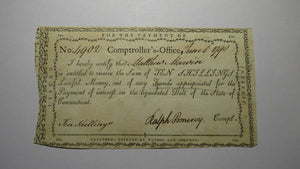 FOR THE PAYMENT OF
No. 4902 Comptroller's-Office, June 6 1790
I hereby certify that Matthew Merwin
is entitled to receive the Sum of TEN SHILLINGS
Lawful Money, out of any Funds appropriated for the
Payment of interest on the liquidated Debt of the State of
Connecticut.
Ten Shillings Ralph Pomeroy Compt.
HARTFORD: PRINTED BY HUDSON AND GOODWIN.